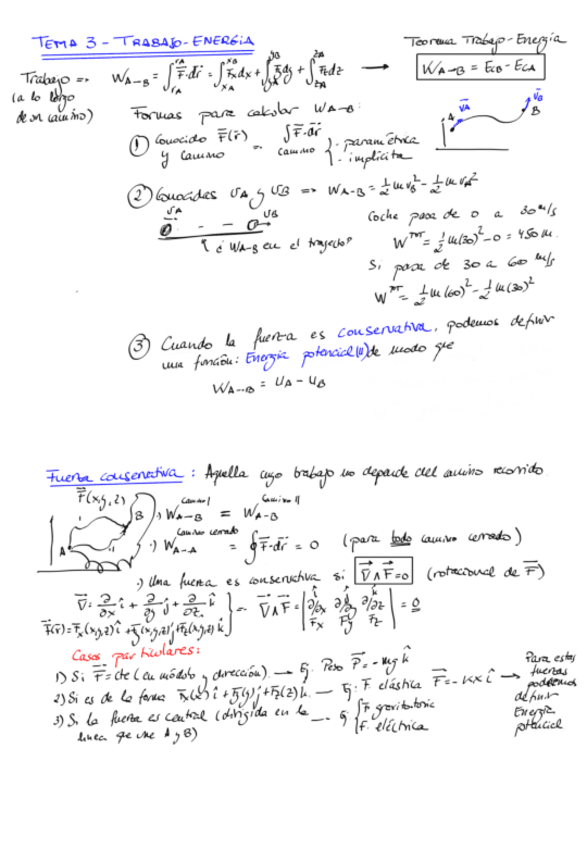 TEMA 3 - TRABAJO-ENERGÍA
Teorema Trabajo-Energía
Trabajo => W_{A→B} = ∫_{r_A}^{r_B} F⃗·dr⃗ = ∫_{x_A}^{x_B} F_x dx + ∫_{y_A}^{y_B} F_y dy + ∫_{z_A}^{z_B} F_z dz → W_{A→B} = E_{CB} - E_{CA}
(a lo largo
de un camino)
Formas para calcular W_{A-B}:
① Conocido F⃗(r⃗) y camino ∫_{camino} F⃗·dr⃗ { - paramétrica - implícita
A B v⃗_A v⃗_B
② Conocidas v_A y v_B => W_{A-B} = 1/2 m v_B² - 1/2 m v_A²
v_A v_B
¿ W_{A-B} en el trayecto?
Coche pasa de 0 a 30 m/s
W^{TOT} = 1/2 m(30)² - 0 = 450 m
Si pasa de 30 a 60 m/s
W^{TOT} = 1/2 m(60)² - 1/2 m(30)²
③ Cuando la fuerza es conservativa, podemos definir
una función: Energía potencial (U) de modo que
W_{A→B} = U_A - U_B
Fuerza conservativa : Aquella cuyo trabajo no depende del camino recorrido
F⃗(x,y,z)
A B
·) W_{A-B}^{camino I} = W_{A-B}^{camino II}
·) W_{A-A}^{camino cerrado} = ∮ F⃗·dr⃗ = 0 (para todo camino cerrado)
·) Una fuerza es conservativa si ∇⃗∧F⃗=0 (rotacional de F⃗)
∇⃗ = ∂/∂x î + ∂/∂y ĵ + ∂/∂z k̂
F⃗(r⃗) = F_x(x,y,z) î + F_y(x,y,z) ĵ + F_z(x,y,z) k̂
∇⃗∧F⃗ = | î ĵ k̂ ; ∂/∂x ∂/∂y ∂/∂z ; F_x F_y F_z | = 0
Casos particulares:
1) Si F⃗ = cte (en módulo y dirección) → Ej: Peso P⃗ = -mg k̂
2) Si es de la forma F_x(x) î + F_y(y) ĵ + F_z(z) k̂ → Ej: F. elástica F⃗ = -kx î →
3) Si la fuerza es central (dirigida en la
línea que une A y B) → Ej: { F. gravitatoria F. eléctrica
Para estas
fuerzas
podemos
definir
Energía
potencial